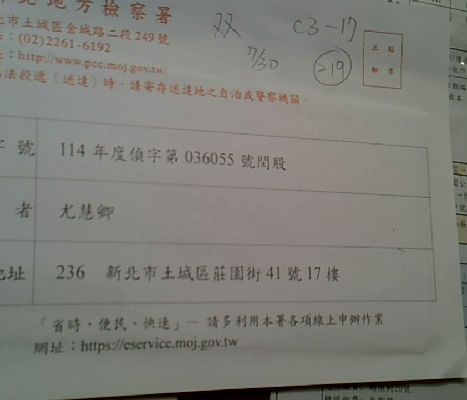 北地方檢察署
北市土城區金城路二段249號
:(02)2261-6192
http://www.pcc.moj.gov.tw/
法投遞(送達)時,請寄存送達地之自治或警察機關.
双 C3-17
7/30 219
字 號 114 年度偵字第 036055 號閏股
者 尤慧卿
地址 236 新北市土城區莊園街 41 號 17 樓
「省時、便民、快速」— 請多利用本署各項線上申辦作業
網址:https://eservice.moj.gov.tw